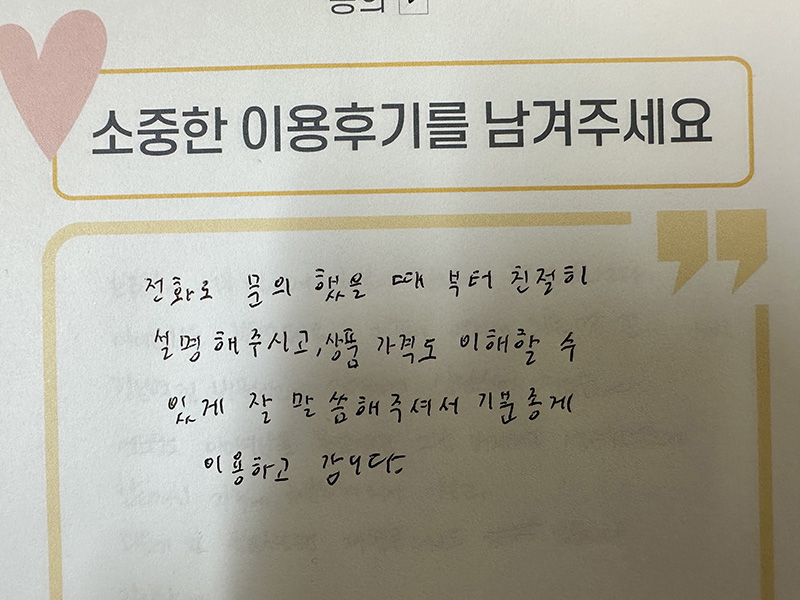 동의 ✓
소중한 이용후기를 남겨주세요
전화로 문의 했을 때 부터 친절히
설명해주시고, 상품 가격도 이해할 수
있게 잘 말씀해주셔서 기분좋게
이용하고 갑니다.